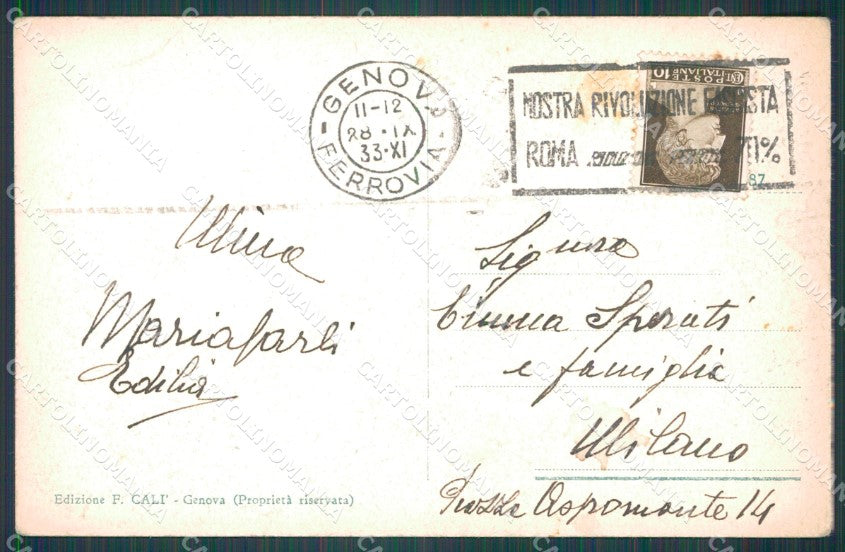 GENOVA
11-12
28·IX
33·XI
FERROVIA
MOSTRA RIVOLUZIONE FASCISTA
ROMA 70%
POSTE ITALIANE 10
87
Signora
Emma Sperati
e famiglia
Milano
Piazza Aspromonte 14
Mariacarli
Edilia
Edizione F. CALI' - Genova (Proprietà riservata)
CARTOLINOMANIA